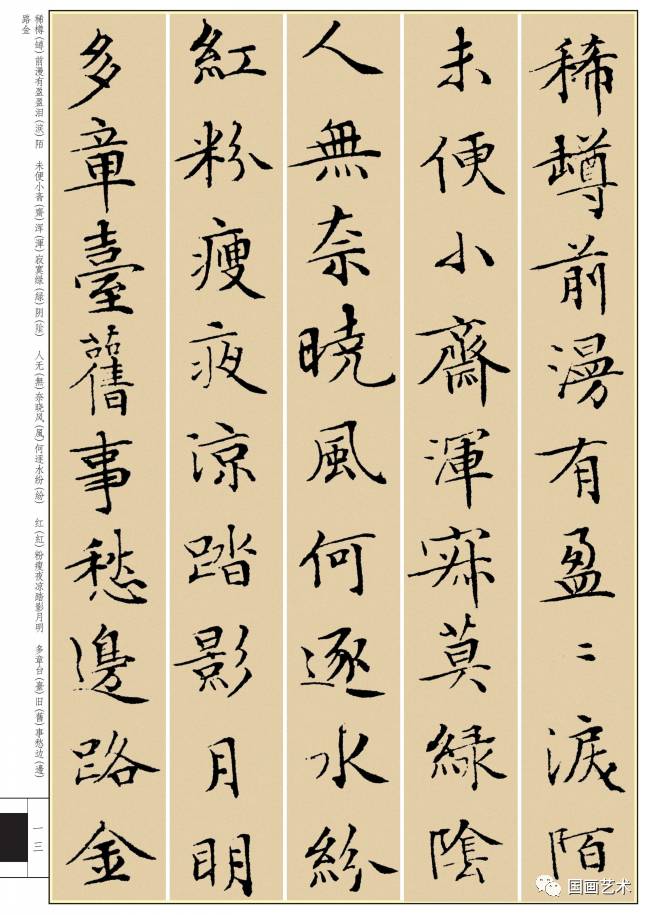 稀罇前漫有盈〻淚陌
未便小齋渾寂莫緑陰
人無奈曉風何逐水紛
紅粉瘦夜涼踏影月明
多章臺舊事愁邊路金
稀樽(罇)前漫有盈盈泪(淚)陌 未便小斋(齋)浑(渾)寂寞绿(緑)阴(陰) 人无(無)奈晓风(風)何逐水纷(紛) 红(紅)粉瘦夜凉踏影月明 多章台(臺)旧(舊)事愁边(邊)
路金
一三
国画艺术